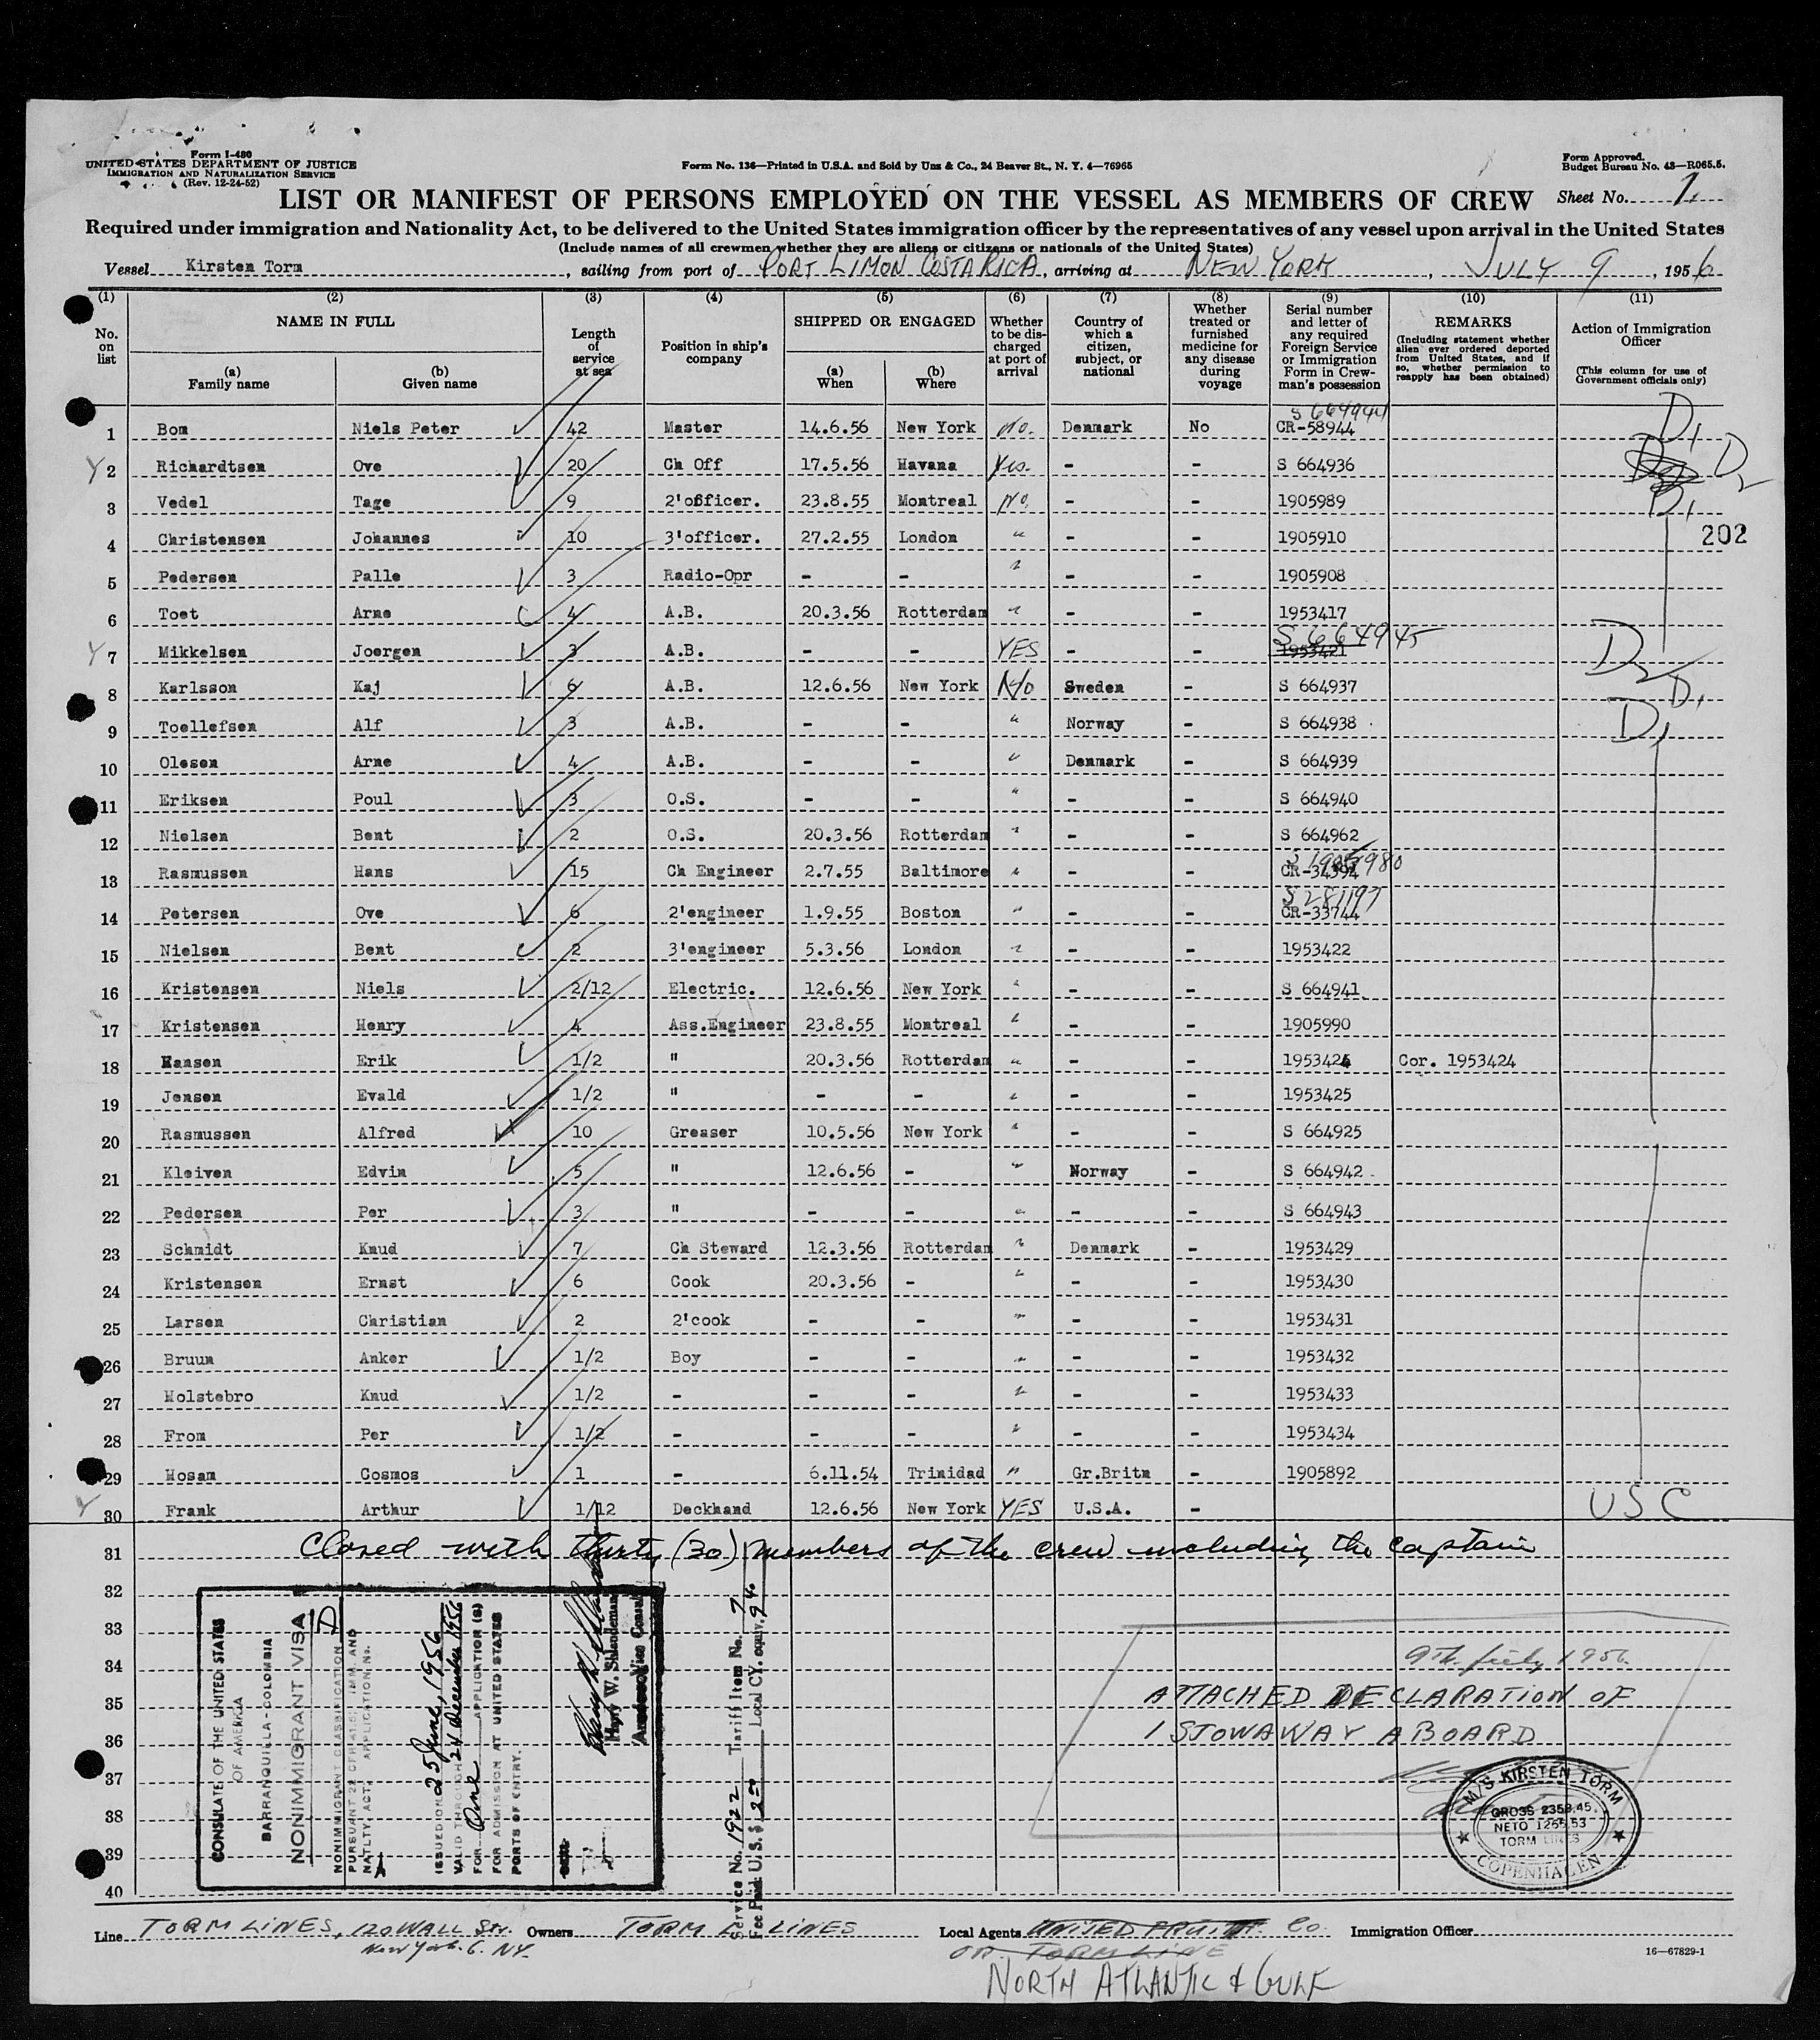 Form I-480
UNITED STATES DEPARTMENT OF JUSTICE
IMMIGRATION AND NATURALIZATION SERVICE
(Rev. 12-24-52)
Form No. 136—Printed in U.S.A. and Sold by Unz & Co., 24 Beaver St., N. Y. 4—76965
Form Approved.
Budget Bureau No. 43—R065.5.
LIST OR MANIFEST OF PERSONS EMPLOYED ON THE VESSEL AS MEMBERS OF CREW Sheet No. 1.
Required under immigration and Nationality Act, to be delivered to the United States immigration officer by the representatives of any vessel upon arrival in the United States
(Include names of all crewmen whether they are aliens or citizens or nationals of the United States)
Vessel Kirsten Torm, sailing from port of PORT LIMON COSTA RICA, arriving at NEW YORK, JULY 9, 1956
(1) (2) (3) (4) (5) (6) (7) (8) (9) (10) (11)
No. on list
NAME IN FULL
(a) Family name
(b) Given name
Length of service at sea
Position in ship's company
SHIPPED OR ENGAGED
(a) When
(b) Where
Whether to be discharged at port of arrival
Country of which a citizen, subject, or national
Whether treated or furnished medicine for any disease during voyage
Serial number and letter of any required Foreign Service or Immigration Form in Crewman's possession
REMARKS
(Including statement whether alien ever ordered deported from United States, and if so, whether permission to reapply has been obtained)
Action of Immigration Officer
(This column for use of Government officials only)
S 664944
1 Bom Niels Peter 42 Master 14.6.56 New York No. Denmark No CR-58944 D1
Y 2 Richardtsen Ove 20 Ch Off 17.5.56 Havana Yes. - - S 664936 D2
3 Vedel Tage 9 2'officer. 23.8.55 Montreal No. - - 1905989 D1
4 Christensen Johannes 10 3'officer. 27.2.55 London " - - 1905910 202
5 Pedersen Palle 3 Radio-Opr - - " - - 1905908
6 Toet Arne 4 A.B. 20.3.56 Rotterdam " - - 1953417
S 664945
Y 7 Mikkelsen Joergen 3 A.B. - - YES - - 1953421 D2
8 Karlsson Kaj 6 A.B. 12.6.56 New York No Sweden - S 664937 D1
9 Toellefsen Alf 3 A.B. - - " Norway - S 664938 D1
10 Olesen Arne 4 A.B. - - " Denmark - S 664939
11 Eriksen Poul 3 O.S. - - " - - S 664940
12 Nielsen Bent 2 O.S. 20.3.56 Rotterdam " - - S 664962
13 Rasmussen Hans 15 Ch Engineer 2.7.55 Baltimore " - - CR-34394
S 281197
14 Petersen Ove 6 2'engineer 1.9.55 Boston " - - CR-33744
15 Nielsen Bent 2 3'engineer 5.3.56 London " - - 1953422
16 Kristensen Niels 2/12 Electric. 12.6.56 New York " - - S 664941
17 Kristensen Henry 4 Ass.Engineer 23.8.55 Montreal " - - 1905990
18 Hansen Erik 1/2 " 20.3.56 Rotterdam " - - 1953424 Cor. 1953424
19 Jensen Evald 1/2 " - - " - - 1953425
20 Rasmussen Alfred 10 Greaser 10.5.56 New York " - - S 664925
21 Kleiven Edvin 5 " 12.6.56 - " Norway - S 664942
22 Pedersen Per 3 " - - " - - S 664943
23 Schmidt Knud 7 Ch Steward 12.3.56 Rotterdam " Denmark - 1953429
24 Kristensen Ernst 6 Cook 20.3.56 - " - - 1953430
25 Larsen Christian 2 2'cook - - " - - 1953431
26 Bruun Anker 1/2 Boy - - " - - 1953432
27 Holstebro Knud 1/2 - - - " - - 1953433
28 From Per 1/2 - - - " - - 1953434
29 Hosam Cosmos 1 - 6.11.54 Trinidad " Gr.Britn - 1905892
Y 30 Frank Arthur 1/12 Deckhand 12.6.56 New York YES U.S.A. - USC
31 Closed with thirty (30) members of the crew including the captain
32
33
34 9th July 1956.
35 ATTACHED DECLARATION OF
36 1 STOWAWAY ABOARD
37
38
39
40
CONSULATE OF THE UNITED STATES
OF AMERICA
BARRANQUILLA-COLOMBIA
NONIMMIGRANT VISA
NONIMMIGRANT CLASSIFICATION D
PURSUANT 22 CFR 41.5; IMM. AND
NATLTY. ACT. APPLICATION No.
ISSUED ON 25 June, 1956
VALID THROUGH 24 December 1956
FOR One APPLICATION (S)
FOR ADMISSION AT UNITED STATES
PORTS OF ENTRY.
Harry W. Shlaudeman
American Vice Consul
Service No. 1922 Tariff Item No. 7
Fee Paid: U. S. $ 2.00 Local CY. equiv. 9.40
M/S KIRSTEN TORM
GROSS 2358,45.
NETO 1255,53
TORM LINES
COPENHAGEN
Line TORM LINES, 120 WALL Str. Owners TORM LINES Local Agents UNITED FRUIT Co. Immigration Officer
New York. 6. NY.
OR TORM LINE
16—67829-1
NORTH ATLANTIC & GULF